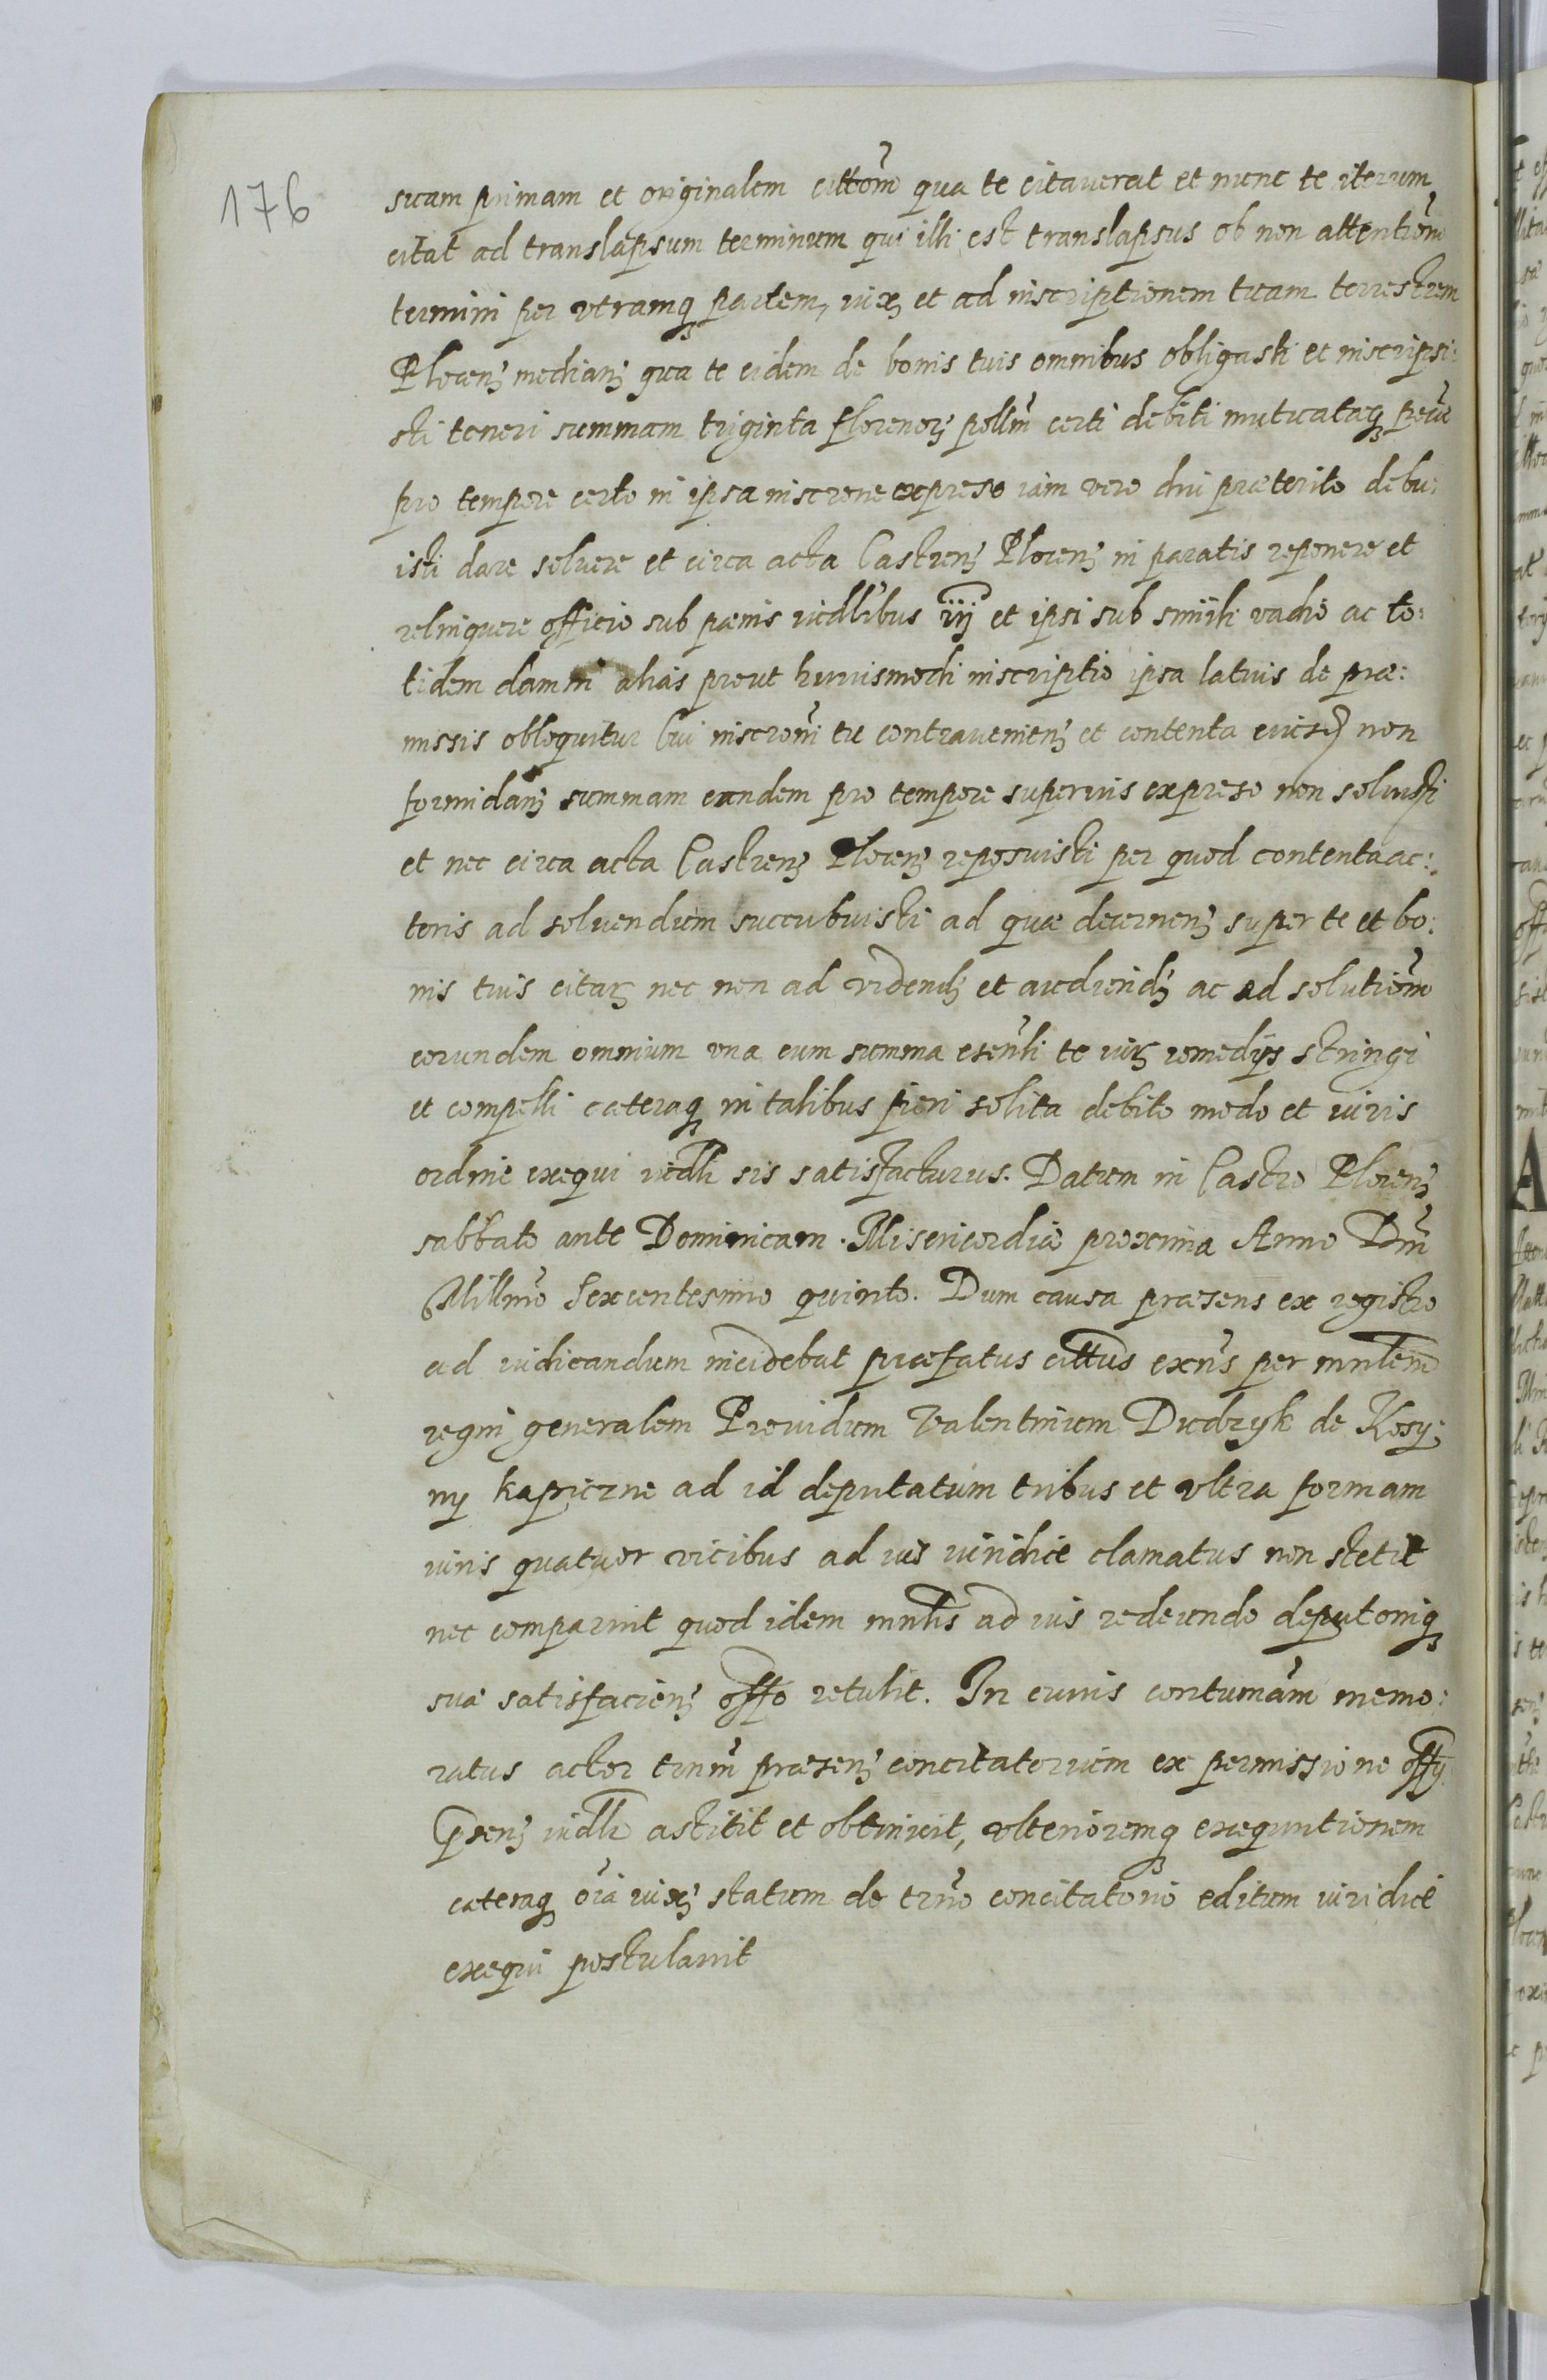 176
suam primam et originalem citto͂m qua te citauerat et nunc te iterum
citat ad translapsum terminum qui illi est translapsus ob non attentio͂m
termini per vtramqȝ partem, iuxȝ et ad inscriptionem tuam terrestrem
Plocenȝ medianȝ qua te eidem de bonis tuis omnibus obligasti et inscripsi:
sti teneri summam triginta florenorȝ polln͂ certi debiti mutuataqȝ pecu͂
pro tempore certo in ipsa inscrone expreso iam vero diu præterito debu:
isti dare soluere et circa acta Castrenȝ Plocenȝ in paratis reponere et
relinquere officio sub pænis iudlibus iij et ipsi sub simili vadio ac to:
tidem damni alias prout huiusmodi inscriptio ipsa latius de præ:
missis obloquitur Cui inscroni͂ tu contraueniens et contenta eiusdȝ non
formidanȝ summam eandem pro tempore superius expreso non soluisti
et nec circa acta Castrenȝ Plocenȝ reposuisti per quod contenta ac:
toris ad soluendum succubuisti ad quæ decernenȝ super te et bo:
nis tuis citarȝ nec non ad videndȝ et audiendȝ ac ad solutio͂m
eorundem omnium vna cum summa esen͂li te iurȝ remedijs stringi
et compelli cæteraqȝ in talibus fieri solita debito modo et iuris
ordine exequi iudlr sis satisfacturus. Datum in Castro Plocenȝ
sabbato ante Dominicam Misericordiæ proxima Anno Dn͂i
Millmo͂ Sexcentesimo quinto. Dum causa præsens ex registro
ad iudicandum incidebat præfatus cittus exn͂s per mnlem
regni generalem Prouidum Valentinum Dudzyk de Kosy:
ny kapiczne ad id deputatum tribus et vltra formam
iuris quatuor vicibus ad ius iuridice clamatus non stetit
nec comparuit quod idem mnlis ad ius redeundo deputoniqȝ
suæ satisfacienȝ offo retulit. In cuius contumam͂ memo:
ratus actor trnm͂ præsenȝ concitatorium ex permissione offij
prsenȝ iudlr astitit et obtinuit, vlterioremqȝ exequutionem
cæteraqȝ oi͂a iuxȝ statum de trno͂ concitatorio editum iuridice
exequi postulauit